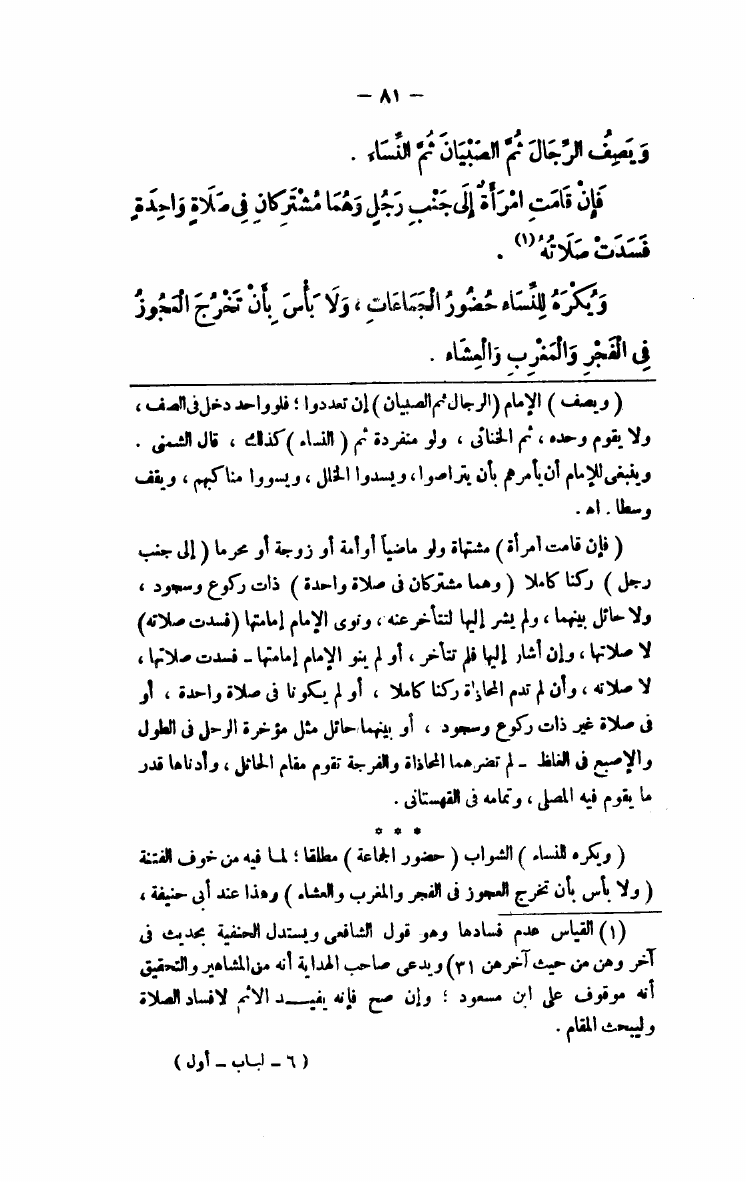 — ٨١ —
وَيَصِفُ الرِّجَالَ ثُمَّ الصِّبْيَانَ ثُمَّ النِّسَاءَ .
فَإِنْ قَامَتِ امْرَأَةٌ إِلَى جَنْبِ رَجُلٍ وَهُمَا مُشْتَرِكَانِ فِي صَلَاةٍ وَاحِدَةٍ
فَسَدَتْ صَلَاتُهُ (١) .
وَيُكْرَهُ لِلنِّسَاءِ حُضُورُ الْجَمَاعَاتِ ، وَلَا بَأْسَ بِأَنْ تَخْرُجَ الْعَجُوزُ
فِي الْفَجْرِ وَالْمَغْرِبِ وَالْعِشَاءِ .
( ويصف ) الإمام (الرجال ثم الصبيان ) إن تعددوا ؛ فلو واحد دخل فى الصف ،
ولا يقوم وحده ، ثم الخنائى ، ولو منفردة ثم ( النساء ) كذلك ، قال الشمنى .
وينبغى للإمام أن يأمرهم بأن يتراصوا ، ويسدوا الخلل ، ويسووا مناكبهم ، ويقف
وسطا . اه .
( فإن قامت امرأة ) مشتهاة ولو ماضياً أو أمة أو زوجة أو محرما ( إلى جنب
رجل ) ركنا كاملا ( وهما مشتركان فى صلاة واحدة ) ذات ركوع وسجود ،
ولا حائل بينهما ، ولم يشر إليها لتتأخر عنه ، ونوى الإمام إمامتها (فسدت صلاته)
لا صلاتها ، وإن أشار إليها فلم تتأخر ، أو لم ينو الإمام إمامتها ــ فسدت صلاتها ،
لا صلاته ، وأن لم تدم المحاذاة ركنا كاملا ، أو لم يكونا فى صلاة واحدة ، أو
فى صلاة غير ذات ركوع وسجود ، أو بينهما حائل مثل مؤخرة الرحل فى الطول
والإصبع فى الغلظ ــ لم تضرهما المحاذاة والفرجة تقوم مقام الحائل ، وأدناها قدر
ما يقوم فيه المصلى ، وتمامه فى القهستانى .
* * *
( ويكره للنساء ) الشواب ( حضور الجماعة ) مطلقا ؛ لمــا فيه من خوف الفتنة
( ولا بأس بأن تخرج العجوز فى الفجر والمغرب والعشاء ) وهذا عند أبى حنيفة ،
(١) القياس عدم فسادها وهو قول الشافعى ويستدل الحنفية بحديث فى
آخر وهن من حيث آخرهن ٣١) ويدعى صاحب الهداية أنه من المشاهير والتحقيق
أنه موقوف على ابن مسعود ؛ وإن صح فإنه يفيــــد الاثم لافساد الصلاة
وليبحث المقام .
( ٦ ــ لباب ــ أول )